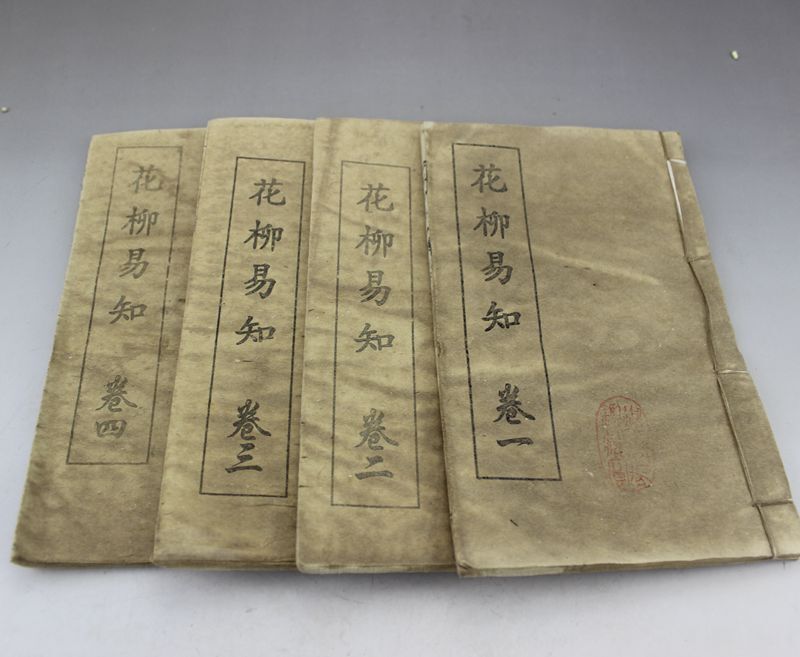 花柳易知 卷一
花柳易知 卷二
花柳易知 卷三
花柳易知 卷四